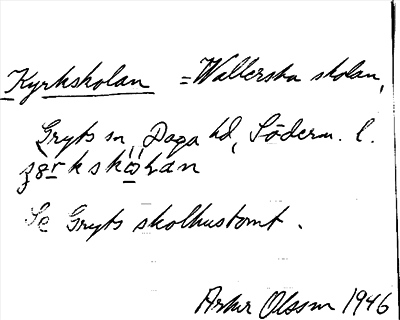 Kyrkskolan = Wallerska skolan,
Gryts sn, Daga hd, Söderm. l.
Se Gryts skolhustomt.
Artur Olsson 1946